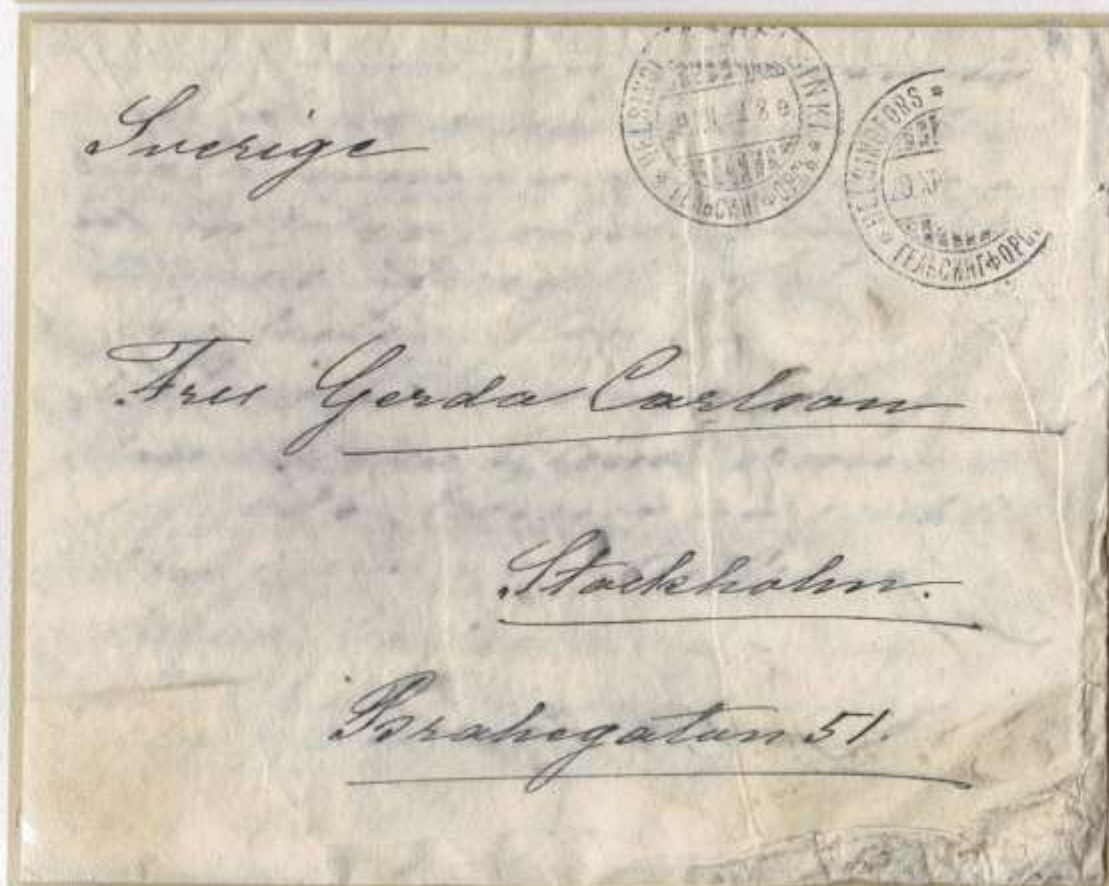 Sverige
HELSINGFORS
ГЕЛЬСИНГФОРСЪ
HELSINGFORS
ГЕЛЬСИНГФОРС
Fru Gerda Carlson
Stockholm.
Brahegatan 51.